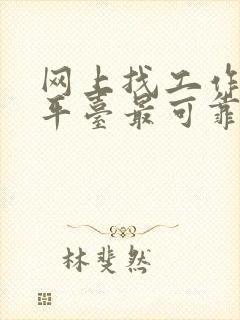 网上找工作
平臺最可靠
林斐然